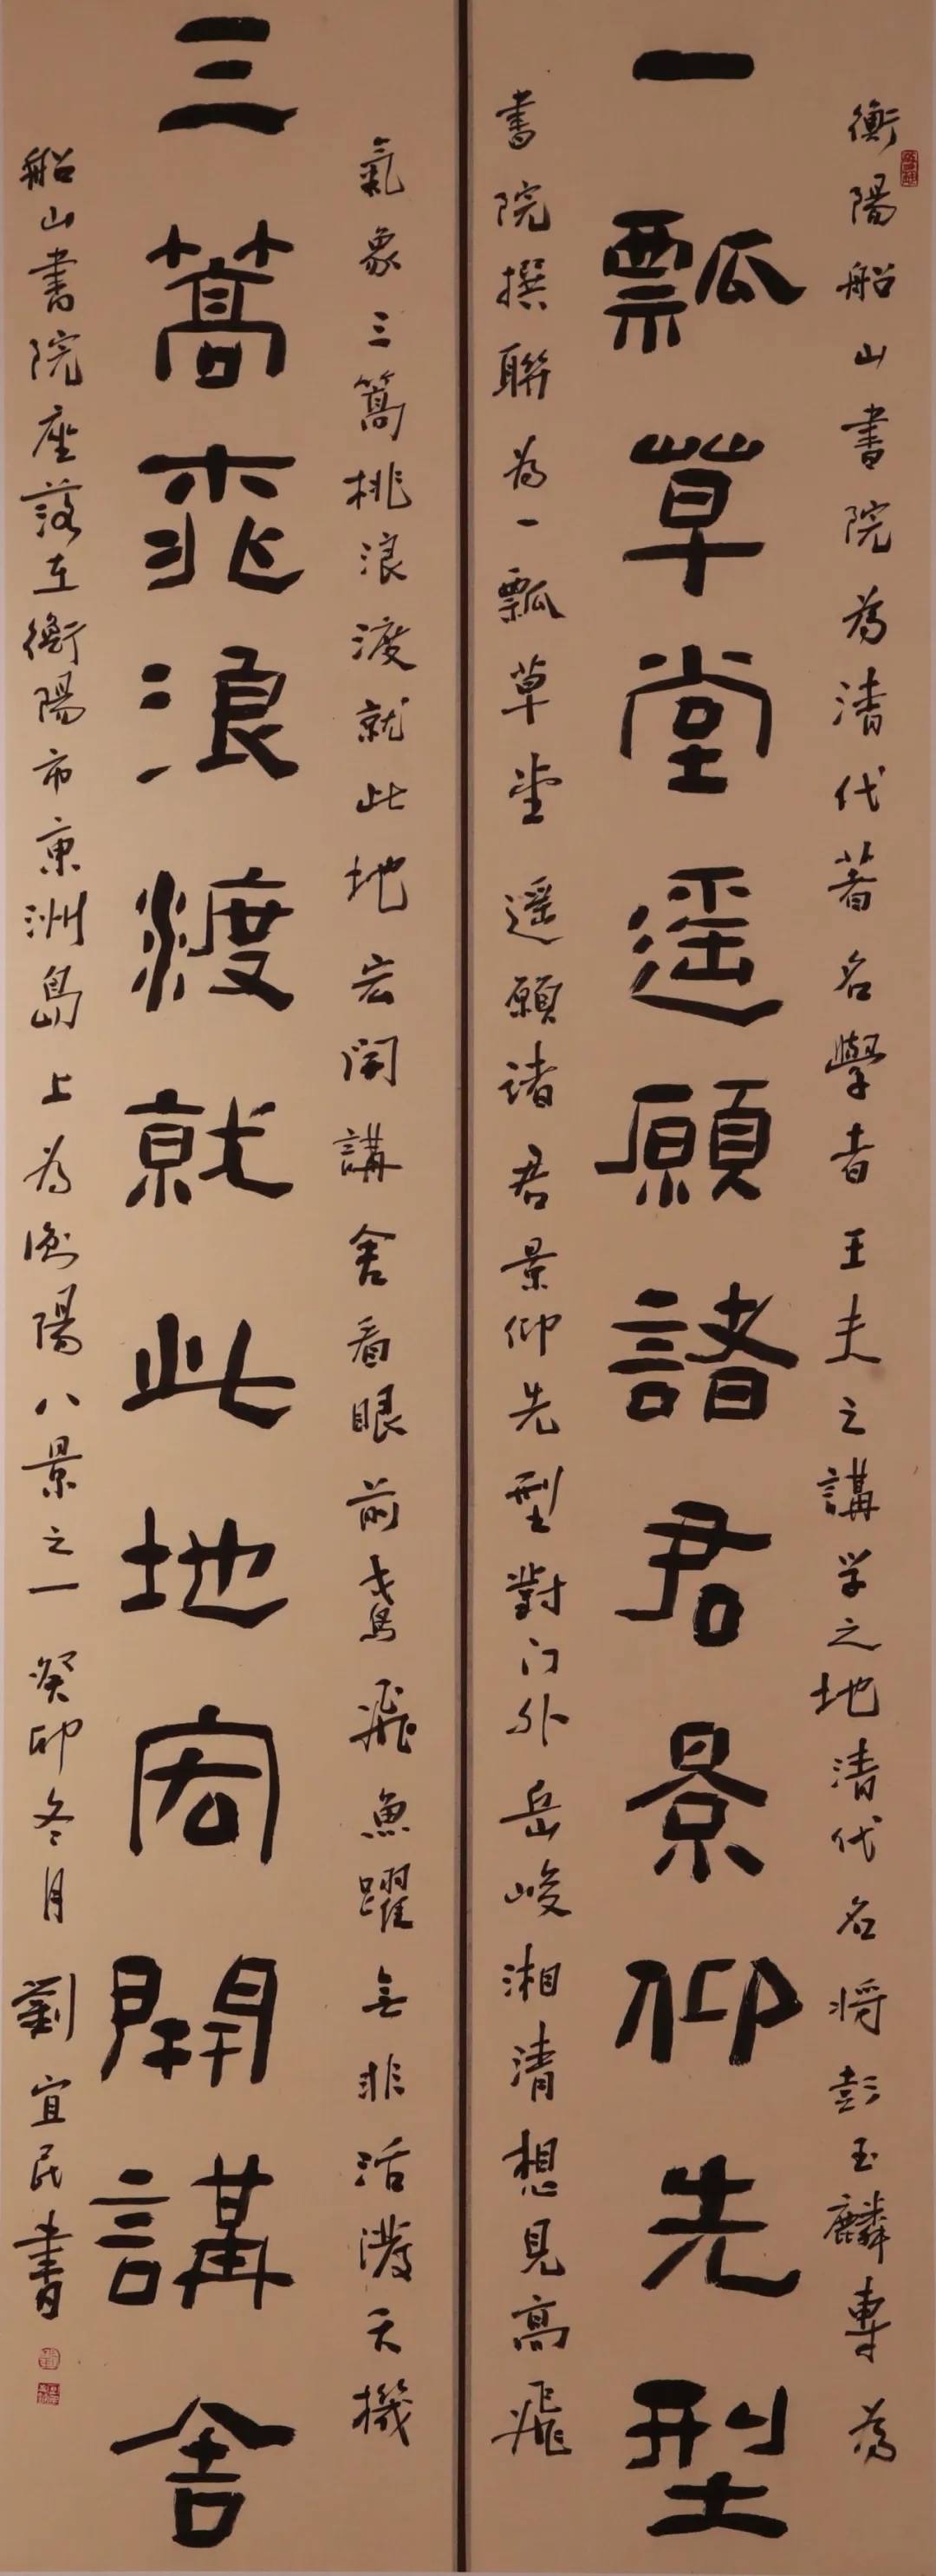 衡陽船山書院為清代著名學者王夫之講学之地清代名将彭玉麟專為
一瓢草堂遥願諸君景仰先型
書院撰聯為一瓢草堂遥願諸君景仰先型對门外岳峻湘清想見高飛
氣象三篙桃浪渡就此地宏開講舍看眼前鳶飛魚躍無非活潑天機
三篙桃浪渡就此地宏開講舍
船山書院座落在衡陽市東洲島上為衡陽八景之一癸卯冬月劉宜民書